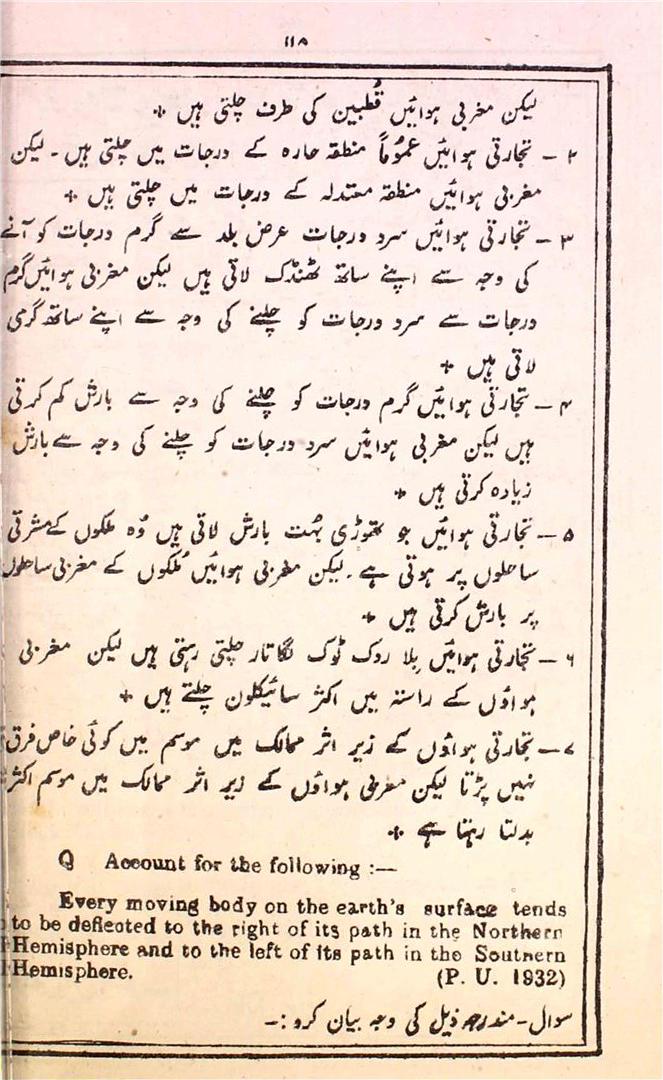 ۱۱۸
لیکن مغربی ہوائیں قُطبین کی طرف چلتی ہیں +
۲ – تجارتی ہوائیں عمُوماً منطقہ حارہ کے درجات میں چلتی ہیں ۔ لیکن
مغربی ہوائیں منطقہ معتدلہ کے درجات میں چلتی ہیں +
۳ – تجارتی ہوائیں سرد درجات عرض بلد سے گرم درجات کو آنے
کی وجہ سے اپنے ساتھ ٹھنڈک لاتی ہیں لیکن مغربی ہوائیں گرم
درجات سے سرد درجات کو چلنے کی وجہ سے اپنے ساتھ گرمی
لاتی ہیں +
۴ – تجارتی ہوائیں گرم درجات کو چلنے کی وجہ سے بارش کم کرتی
ہیں لیکن مغربی ہوائیں سرد درجات کو چلنے کی وجہ سے بارش
زیادہ کرتی ہیں +
۵ – تجارتی ہوائیں جو تھوڑی بہُت بارش لاتی ہیں وُہ ملکوں کے مشرقی
ساحلوں پر ہوتی ہے ۔ لیکن مغربی ہوائیں مُلکوں کے مغربی ساحلوں
پر بارش کرتی ہیں +
۶ – تجارتی ہوائیں بِلا روک ٹوک لگاتار چلتی رہتی ہیں لیکن مغربی
ہواؤں کے راستہ میں اکثر سائیکلون چلتے ہیں +
۷ – تجارتی ہواؤں کے زیر اثر ممالک میں موسم میں کوئی خاص فرق
نہیں پڑتا لیکن مغربی ہواؤں کے زیر اثر ممالک میں موسم اکثر
بدلتا رہتا ہے +
Q Account for the following :—
Every moving body on the earth's surface tends
to be deflected to the right of its path in the Northern
Hemisphere and to the left of its path in the Southern
Hemisphere. (P. U. 1932)
سوال – مندرجہ ذیل کی وجہ بیان کرو :–